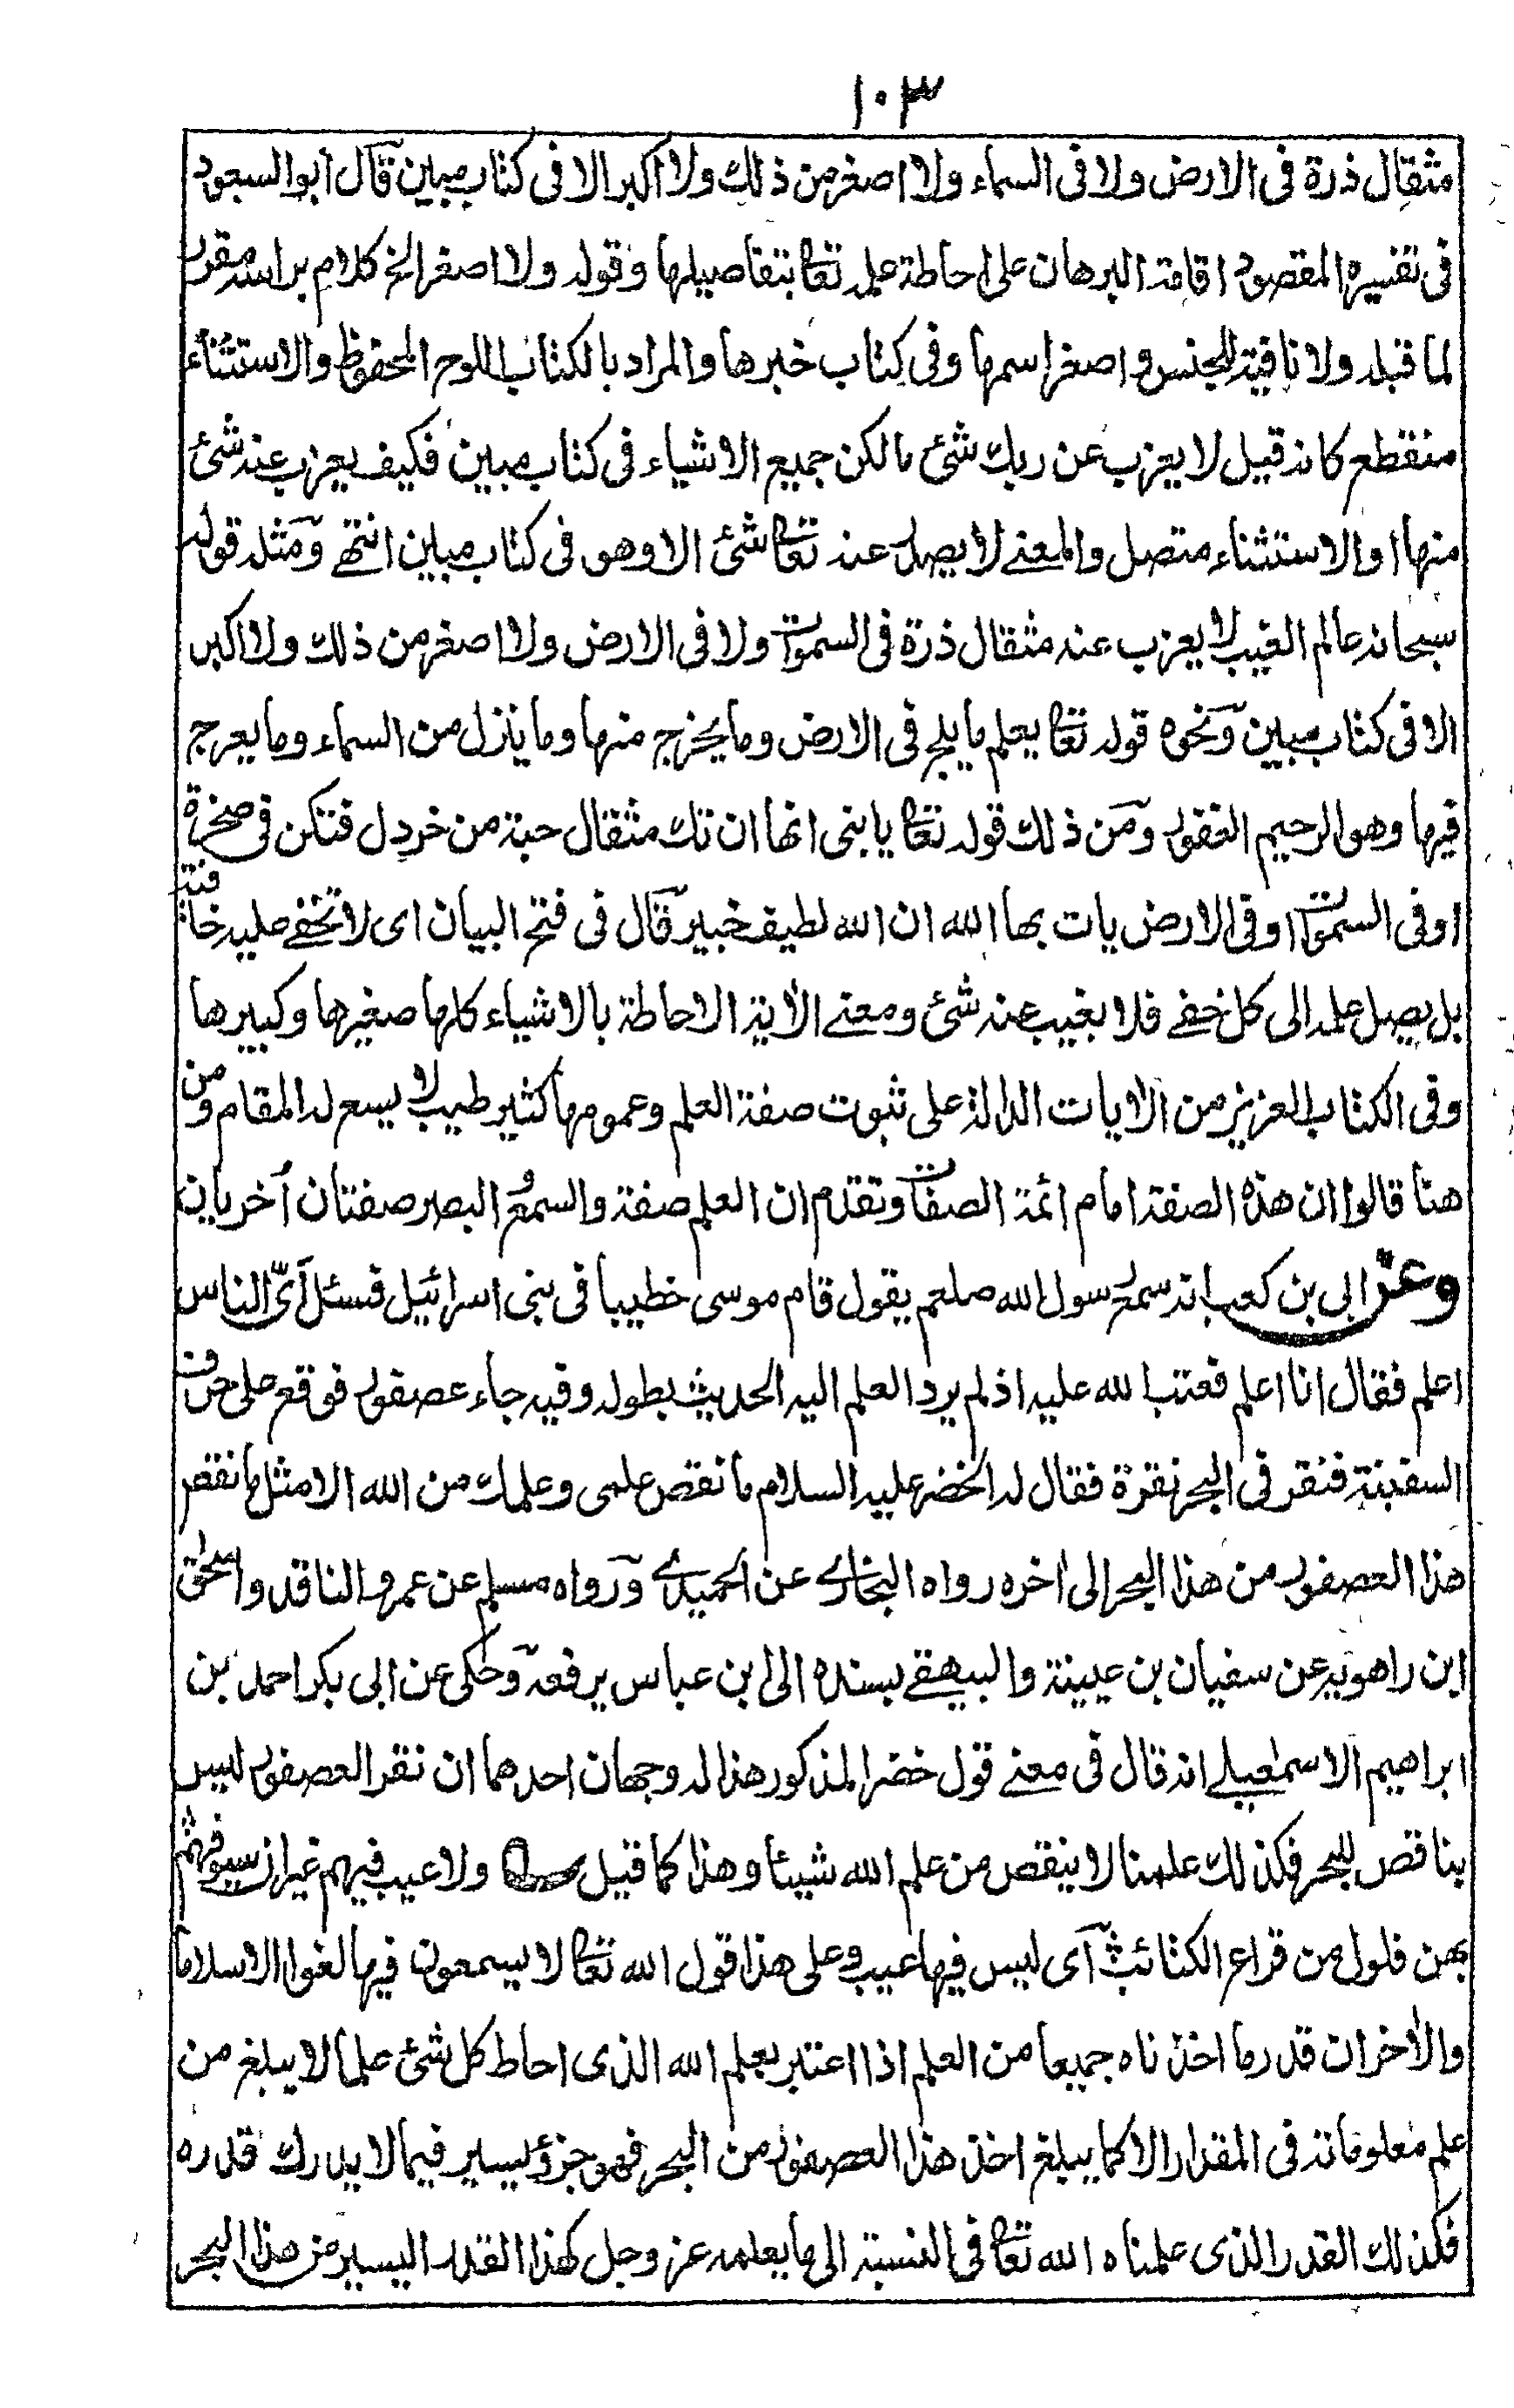 ١٠٣
مثقال ذرة فى الارض ولا فى السماء ولا اصغر من ذلك ولا اكبر الا فى كتاب مبين قال ابو السعود
فى تفسيره المقصود اقامة البرهان على احاطة علمه تعا بتفاصيلها وقوله ولا اصغر الخ كلام براسه مقرر
لما قبله ولا نافية للجنس و اصغر اسمها وفى كتاب خبرها والمراد بالكتاب اللوح المحفوظ والاستثناء
منقطع كانه قيل لا يعزب عن ربك شئ ما لكن جميع الاشياء فى كتاب مبين فكيف يعزب عنه شئ
منها او الاستثناء متصل والمعنے لا يصل عنه تعا شئ الا وهو فى كتاب مبين انتهے ومثله قوله
سبحانه عالم الغيب لا يعزب عنه مثقال ذرة فى السموات ولا فى الارض ولا اصغر من ذلك ولا اكبر
الا فى كتاب مبين ونحوه قوله تعا يعلم ما يلج فى الارض وما يخرج منها وما ينزل من السماء وما يعرج
فيها وهو الرحيم الغفور ومن ذلك قوله تعا يا بنى انها ان تك مثقال حبة من خردل فتكن فى صخرة
او فى السموات او فى الارض يات بها الله ان الله لطيف خبير قال فى فتح البيان اى لا تخفے عليه خافية
بل يصل علمه الى كل خفے فلا يغيب عنه شئ ومعنے الاية الاحاطة بالاشياء كلها صغيرها وكبيرها
وفى الكتاب العزيز من الايات الدالة على ثبوت صفة العلم وعمومها كثير طيب لا يسع له المقام ومن
هنا قالوا ان هذه الصفة امام ائمة الصفات وتقدم ان العلم صفة والسمع و البصر صفتان اخريان
وعن ابى بن كعب انه سمع رسول الله صلعم يقول قام موسى خطيبا فى بنى اسرائيل فسئل اىّ الناس
اعلم فقال انا اعلم فعتب الله عليه اذ لم يرد العلم اليه الحديث بطوله وفيه جاء عصفور فوقع على حرف
السفينة فنقر فى البحر نقرة فقال له الخضر عليه السلام ما نقص علمى وعلمك من الله الا مثل ما نقص
هذا العصفور من هذا البحر الى اخره رواه البخارے عن الحميدے ورواه مسلم عن عمرو الناقد واسحق
ابن راهويه عن سفيان بن عيينة والبيهقے بسنده الى ابن عباس يرفعه وحكى عن ابى بكر احمد بن
ابراهيم الاسمعيلے انه قال فى معنے قول خضر المذكور هذا له وجهان احدهما ان نقر العصفور ليس
بناقص للبحر فكذلك علمنا لا ينقص من علم الله شيئا وهذا كما قيل ولا عيب فيهم غير ان سيوفهم
بهن فلول من قراع الكتائب اى ليس فيها عيب وعلى هذا قول الله تعا لا يسمعون فيها لغوا الا سلاما
والاخر ان قدر ما اخذناه جميعا من العلم اذا اعتبر بعلم الله الذى احاط كل شئ علما لا يبلغ من
علم معلوماته فى المقدار الا كما يبلغ اخذ هذا العصفور من البحر فهو جزؤ يسير فيما لا يدرك قدره
فكذلك القدر الذى علمناه الله تعا فى النسبة الى ما يعلمه عز وجل كهذا القدر اليسير من هذا البحر